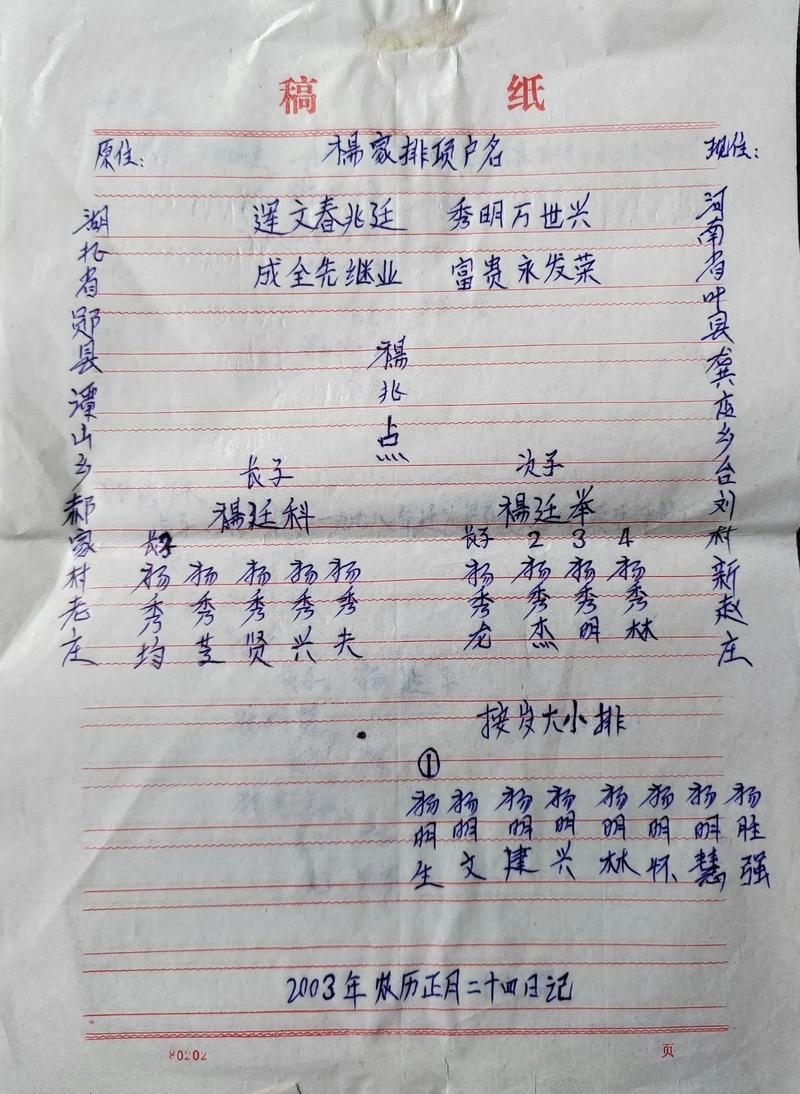 稿 纸
原住: 楊家排项户名 现住:
湖北省郧县谭山乡郝家村老庄
河南省叶县龚店乡台刘村新赵庄
運文春兆廷 秀明万世兴
成全先继业 富贵永发荣
楊兆点
长子 次子
楊廷科 楊廷举
长子 长子 2 3 4
杨秀均 杨秀芝 杨秀贤 杨秀兴 杨秀夫
杨秀龙 杨秀杰 杨秀明 杨秀林
按岁大小排
①
杨明生 杨明文 杨明建 杨明兴 杨明林 杨明怀 杨明慧 杨胜强
2003年农历正月二十四日记
80202 页